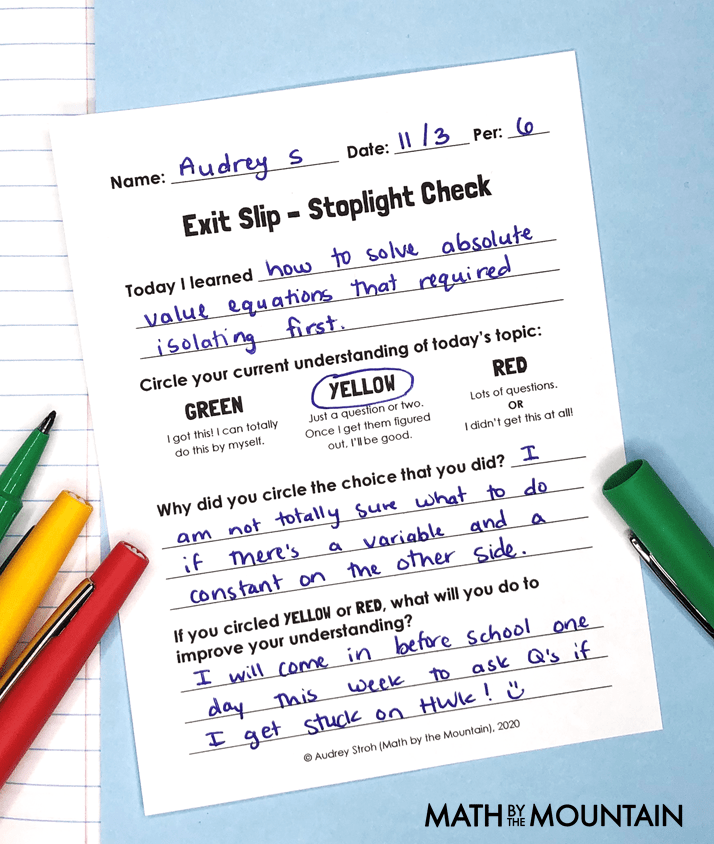 Name: Audrey S Date: 11/3 Per: 6
Exit Slip - Stoplight Check
Today I learned how to solve absolute
value equations that required
isolating first.
Circle your current understanding of today's topic:
GREEN
I got this! I can totally
do this by myself.
YELLOW
Just a question or two.
Once I get them figured
out, I'll be good.
RED
Lots of questions.
OR
I didn't get this at all!
Why did you circle the choice that you did? I
am not totally sure what to do
if there's a variable and a
constant on the other side.
If you circled YELLOW or RED, what will you do to
improve your understanding?
I will come in before school one
day this week to ask Q's if
I get stuck on HWk!
© Audrey Stroh (Math by the Mountain), 2020
MATH BY THE MOUNTAIN